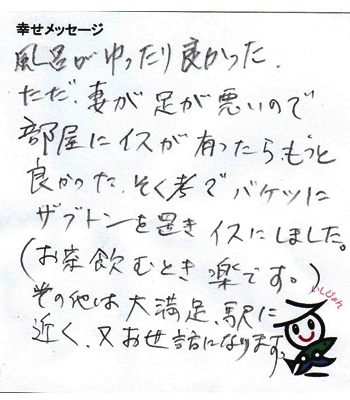 幸せメッセージ
風呂がゆったり良かった.
ただ.妻が足が悪いので
部屋にイスが有ったらもっと
良かった.そく考でバケツに
ザブトンを置きイスにしました。
(お茶飲むとき楽です。)
その他は大満足、駅に
近く、又お世話になります。